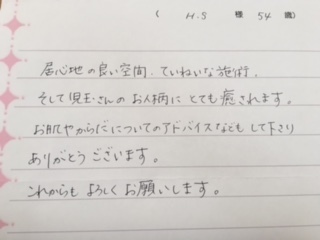 ( H.S 様 54 歳)
居心地の良い空間、ていねいな施術、
そして児玉さんのお人柄にとても癒されます。
お肌やからだについてのアドバイスなどもして下さり
ありがとうございます。
これからもよろしくお願いします。